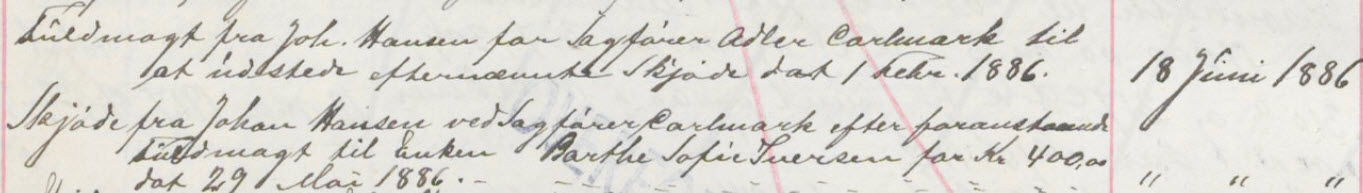 Fuldmagt fra Joh. Hansen for Sagfører Adler Carlmark til
at udstede efternævnte Skjøde dat 1 Febr. 1886. 18 Juni 1886
Skjøde fra Johan Hansen ved Sagfører Carlmark efter foranstaaende
Fuldmagt til Enken Barthe Sofie Iversen for Kr 400,00
dat 29 Mai 1886. - " " "